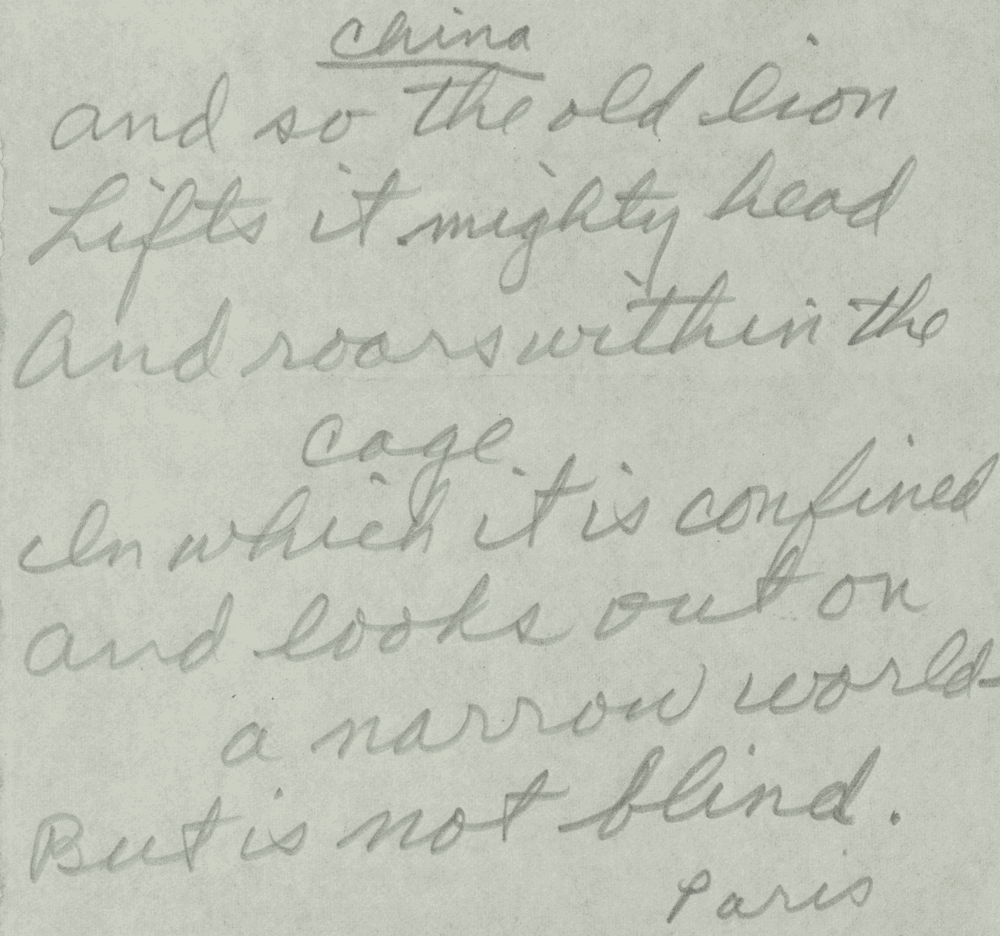 China
and so the old lion
Lifts it mighty head
And roars within the
cage
In which it is confined
and looks out on
a narrow world-
But is not blind.
Paris